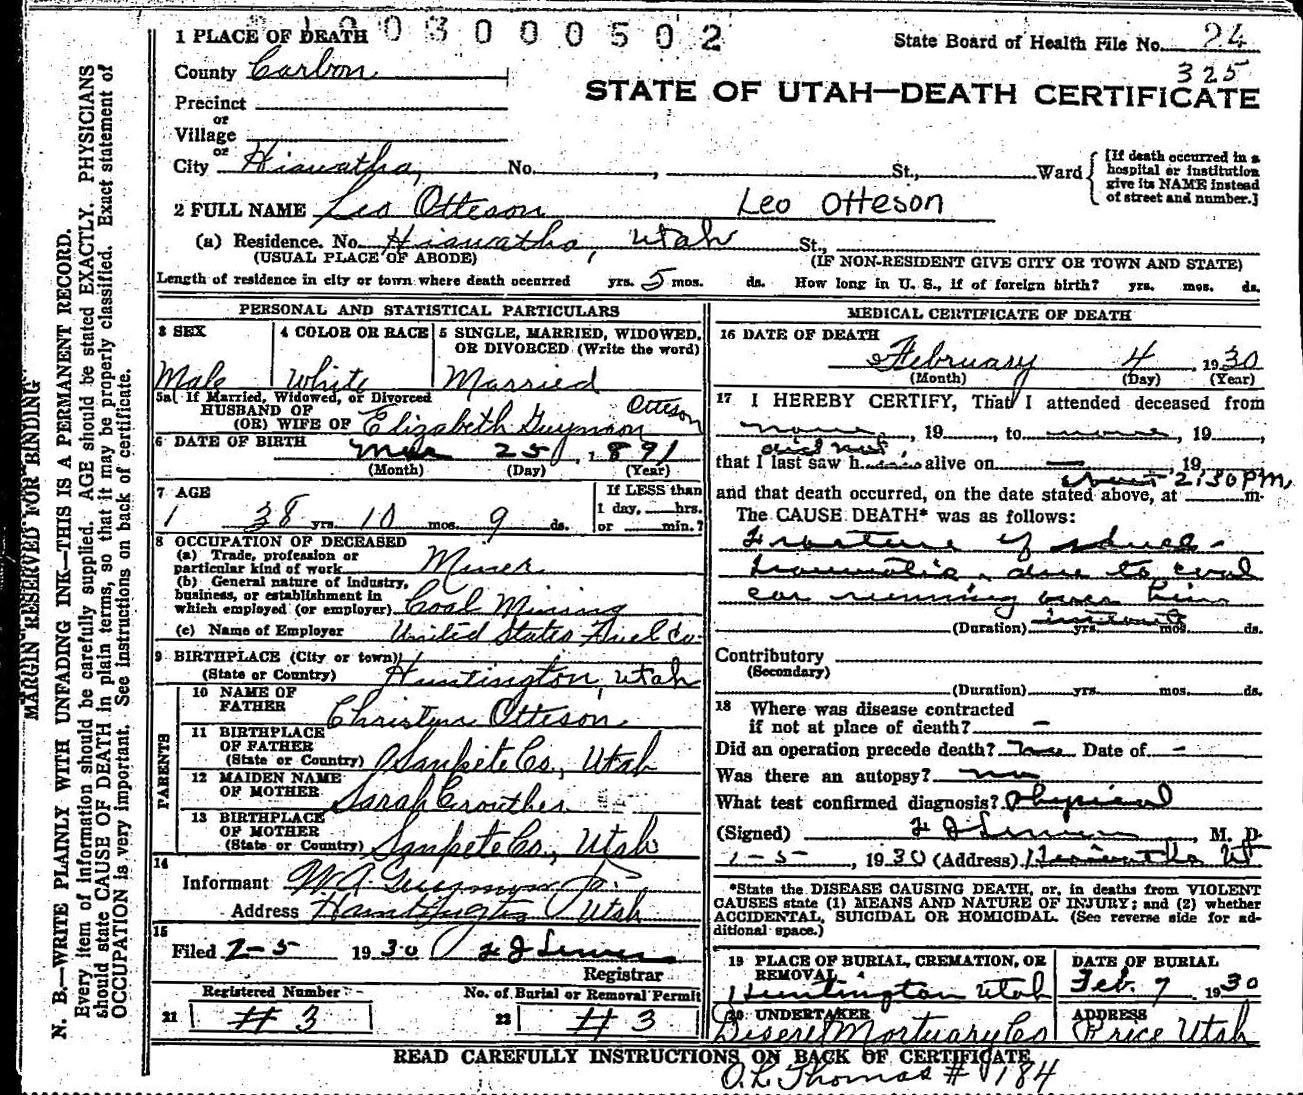 1003000502
1 PLACE OF DEATH
State Board of Health File No. 24
325
County Carbon
STATE OF UTAH—DEATH CERTIFICATE
Precinct
or
Village
or
City Hiawatha, No. , St., Ward
[If death occurred in a hospital or institution give its NAME instead of street and number.]
2 FULL NAME Leo Otteson Leo Otteson
(a) Residence. No. Hiawatha, Utah St.,
(USUAL PLACE OF ABODE) (IF NON-RESIDENT GIVE CITY OR TOWN AND STATE)
Length of residence in city or town where death occurred yrs. 5 mos. ds. How long in U. S., if of foreign birth? yrs. mos. ds.
PERSONAL AND STATISTICAL PARTICULARS
3 SEX 4 COLOR OR RACE 5 SINGLE, MARRIED, WIDOWED, OR DIVORCED (Write the word)
Male White Married
5a If Married, Widowed, or Divorced
HUSBAND OF
(OR) WIFE OF Elizabeth Guymon Otteson
6 DATE OF BIRTH Mar 25 1891
(Month) (Day) (Year)
7 AGE
If LESS than
1 day, hrs.
or min.?
38 yrs. 10 mos. 9 ds.
8 OCCUPATION OF DECEASED
(a) Trade, profession or
particular kind of work Miner
(b) General nature of industry,
business, or establishment in
which employed (or employer) Coal Mining
(c) Name of Employer United States Fuel Co.
9 BIRTHPLACE (City or town)
(State or Country) Huntington, Utah
PARENTS
10 NAME OF
FATHER Christian Otteson
11 BIRTHPLACE
OF FATHER
(State or Country) Sanpete Co., Utah
12 MAIDEN NAME
OF MOTHER Sarah Crowther
13 BIRTHPLACE
OF MOTHER
(State or Country) Sanpete Co., Utah
14
Informant W A Guymon Jr.
Address Huntington Utah
15
Filed 2-5 1930
Registrar
Registered Number No. of Burial or Removal Permit
21 # 3 22 # 3
MEDICAL CERTIFICATE OF DEATH
16 DATE OF DEATH
February 4 1930
(Month) (Day) (Year)
17 I HEREBY CERTIFY, That I attended deceased from
none, 19 , to none, 19 ,
did not,
that I last saw h alive on , 19
about 2:30 PM.
and that death occurred, on the date stated above, at m.
The CAUSE DEATH* was as follows:
Fracture of skull -
traumatic, due to coal
car running over him
(Duration) instant yrs. mos. ds.
Contributory
(Secondary)
(Duration) yrs. mos. ds.
18 Where was disease contracted
if not at place of death? -
Did an operation precede death? None Date of -
Was there an autopsy? no
What test confirmed diagnosis? Physical
(Signed) , M. D.
1-5-, 1930 (Address) Hiawatha Ut
*State the DISEASE CAUSING DEATH, or, in deaths from VIOLENT
CAUSES state (1) MEANS AND NATURE OF INJURY; and (2) whether
ACCIDENTAL, SUICIDAL OR HOMICIDAL. (See reverse side for ad-
ditional space.)
19 PLACE OF BURIAL, CREMATION, OR
REMOVAL
Huntington Utah
DATE OF BURIAL
Feb. 7 1930
20 UNDERTAKER
Deseret Mortuary Co
ADDRESS
Price Utah
READ CAREFULLY INSTRUCTIONS ON BACK OF CERTIFICATE
O. L. Thomas # 184
MARGIN RESERVED FOR BINDING
N. B.—WRITE PLAINLY WITH UNFADING INK—THIS IS A PERMANENT RECORD.
Every item of information should be carefully supplied. AGE should be stated EXACTLY. PHYSICIANS
should state CAUSE OF DEATH in plain terms, so that it may be properly classified. Exact statement of
OCCUPATION is very important. See instructions on back of certificate.